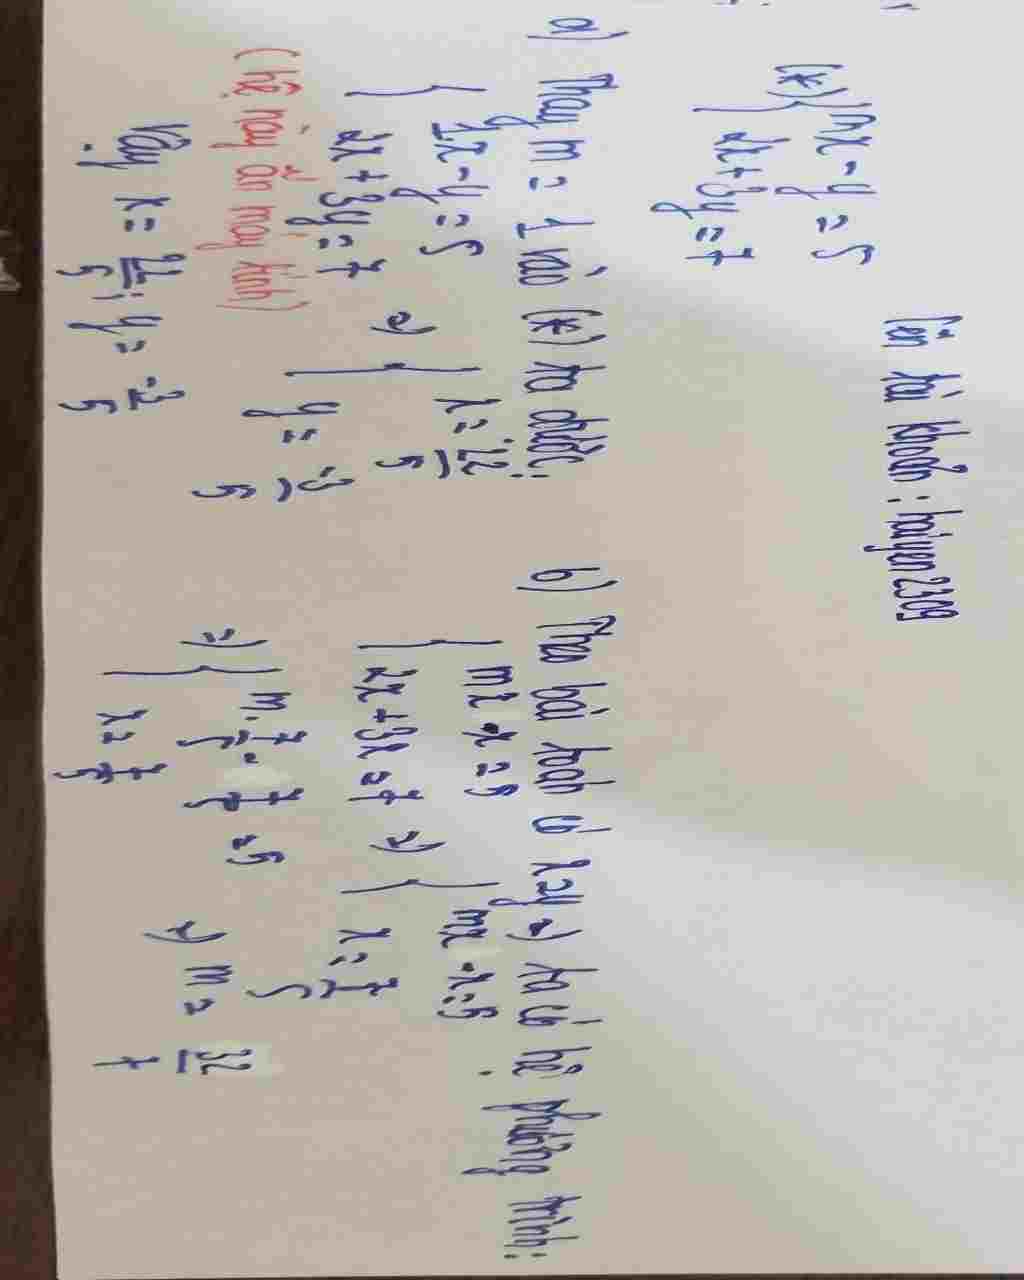 Tên tài khoản : haiyen2309
(*) { mx - y = 5
2x + 3y = 7
a) Thay m = 1 vào (*) ta được:
{ 1x - y = 5
2x + 3y = 7
=> { x = 22/5
y = -3/5
(hệ này ấn máy tính)
Vậy x = 22/5 ; y = -3/5
b) Theo bài toán có x=y => ta có hệ phương trình:
{ mx - x = 5
2x + 3x = 7
=> { mx - x = 5
x = 7/5
=> { m. 7/5 - 7/5 = 5
x = 7/5
=> m = 32/7